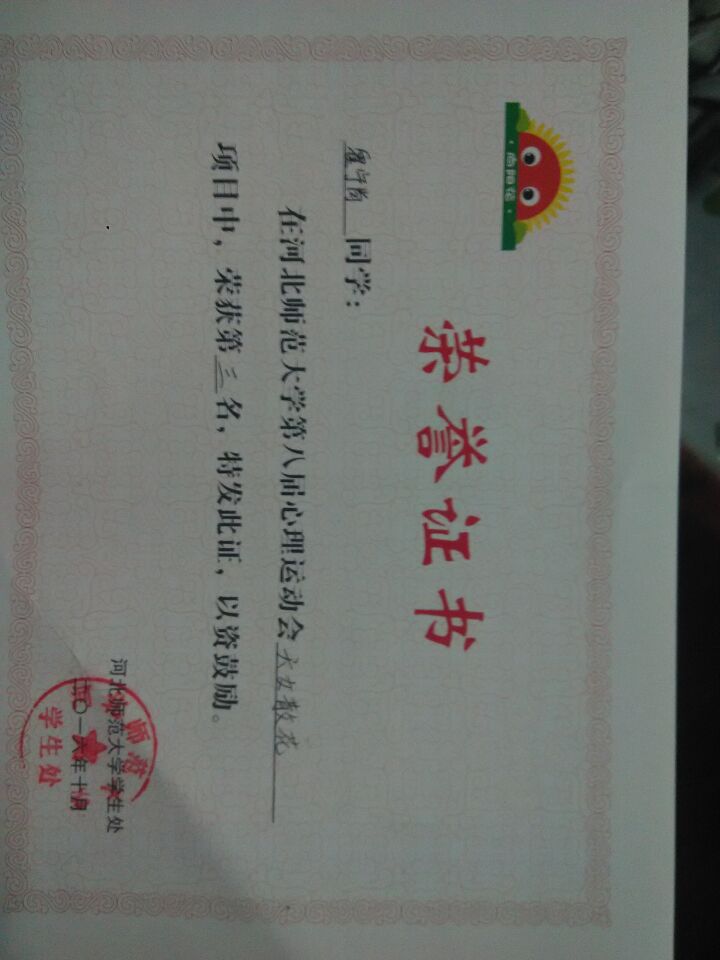 ·向阳花·
荣誉证书
同学：
在河北师范大学第八届心理运动会天女散花
项目中，荣获第三名，特发此证，以资鼓励。
河北师范大学学生处
二〇一六年十月
师范
学生处